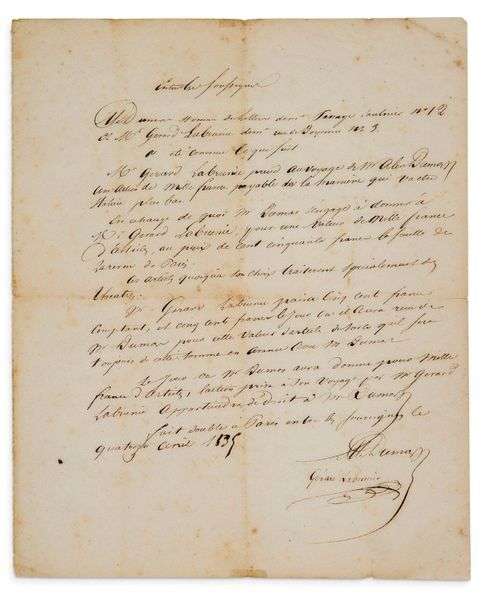 Entre les soussignés
Alex Dumas homme de lettres demt passage Saulnier no 12
et Mr Gerard Labrunie demt rue de no 3.
a été convenu ce qui suit
Mr Gerard Labrunie prend au voyage de Mr Alex Dumas
une action de mille francs payable de la manière qui va être
établie plus bas
En échange de quoi Mr Dumas s'engage à donner à
Mr Gerard Labrunie pour une valeur de mille francs
d'articles au prix de cent cinquante francs la feuille de
la revue de Paris.
Les articles quoiqu'à son choix traiteront spécialement de
théâtre.
Mr Gerard Labrunie paiera cinq cent francs
comptant, et cinq cent francs le jour où il aura reçu de
Mr Dumas pour cette valeur d'articles de sorte qu'il sera
toujours de cette somme en avance avec Mr Dumas
Le jour où Mr Dumas aura donné pour mille
francs d'articles, l'action prise à son voyage par Mr Gerard
Labrunie appartiendra de droit à Mr Dumas
fait double à Paris entre les soussignés le
quatorze avril 1835
Alex Dumas
Gérard Labrunie